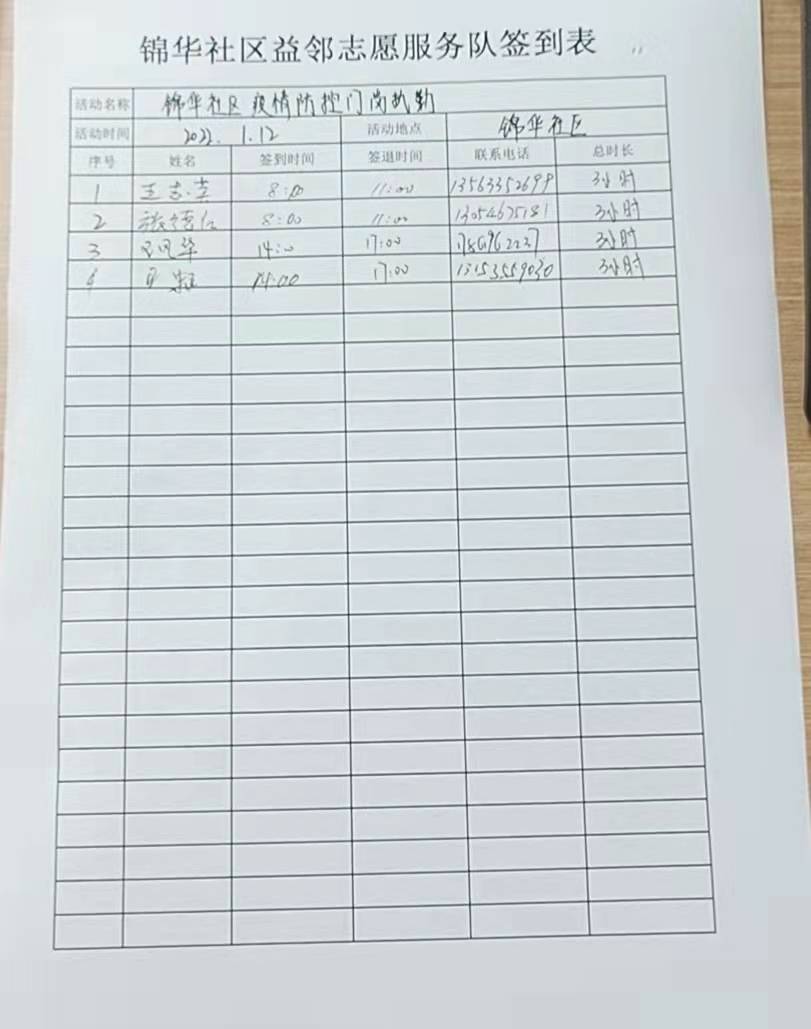 锦华社区益邻志愿服务队签到表
活动名称 锦华社区疫情防控门岗执勤
活动时间 2022. 1.12 活动地点 锦华社区
序号 姓名 签到时间 签退时间 联系电话 总时长
1 王志 8:00 11:00 13563352699 3小时
2 张德仁 8:00 11:00 13054675181 3小时
3 风华 14:00 17:00 3小时
4 14:00 17:00 13153559030 3小时